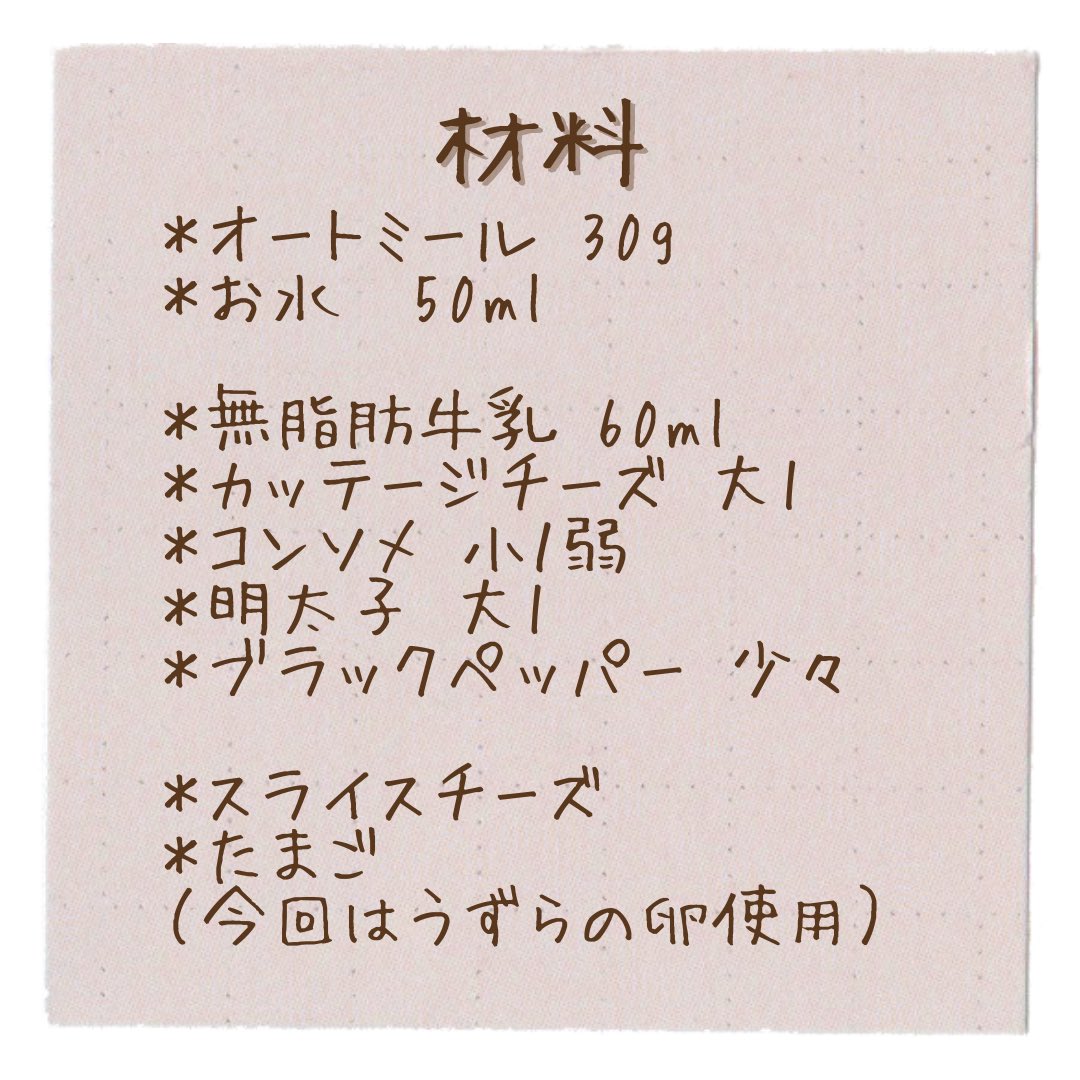 材料
*オートミール 30g
*お水 50ml
*無脂肪牛乳 60ml
*カッテージチーズ 大1
*コンソメ 小1弱
*明太子 大1
*ブラックペッパー 少々
*スライスチーズ
*たまご
(今回はうずらの卵使用)